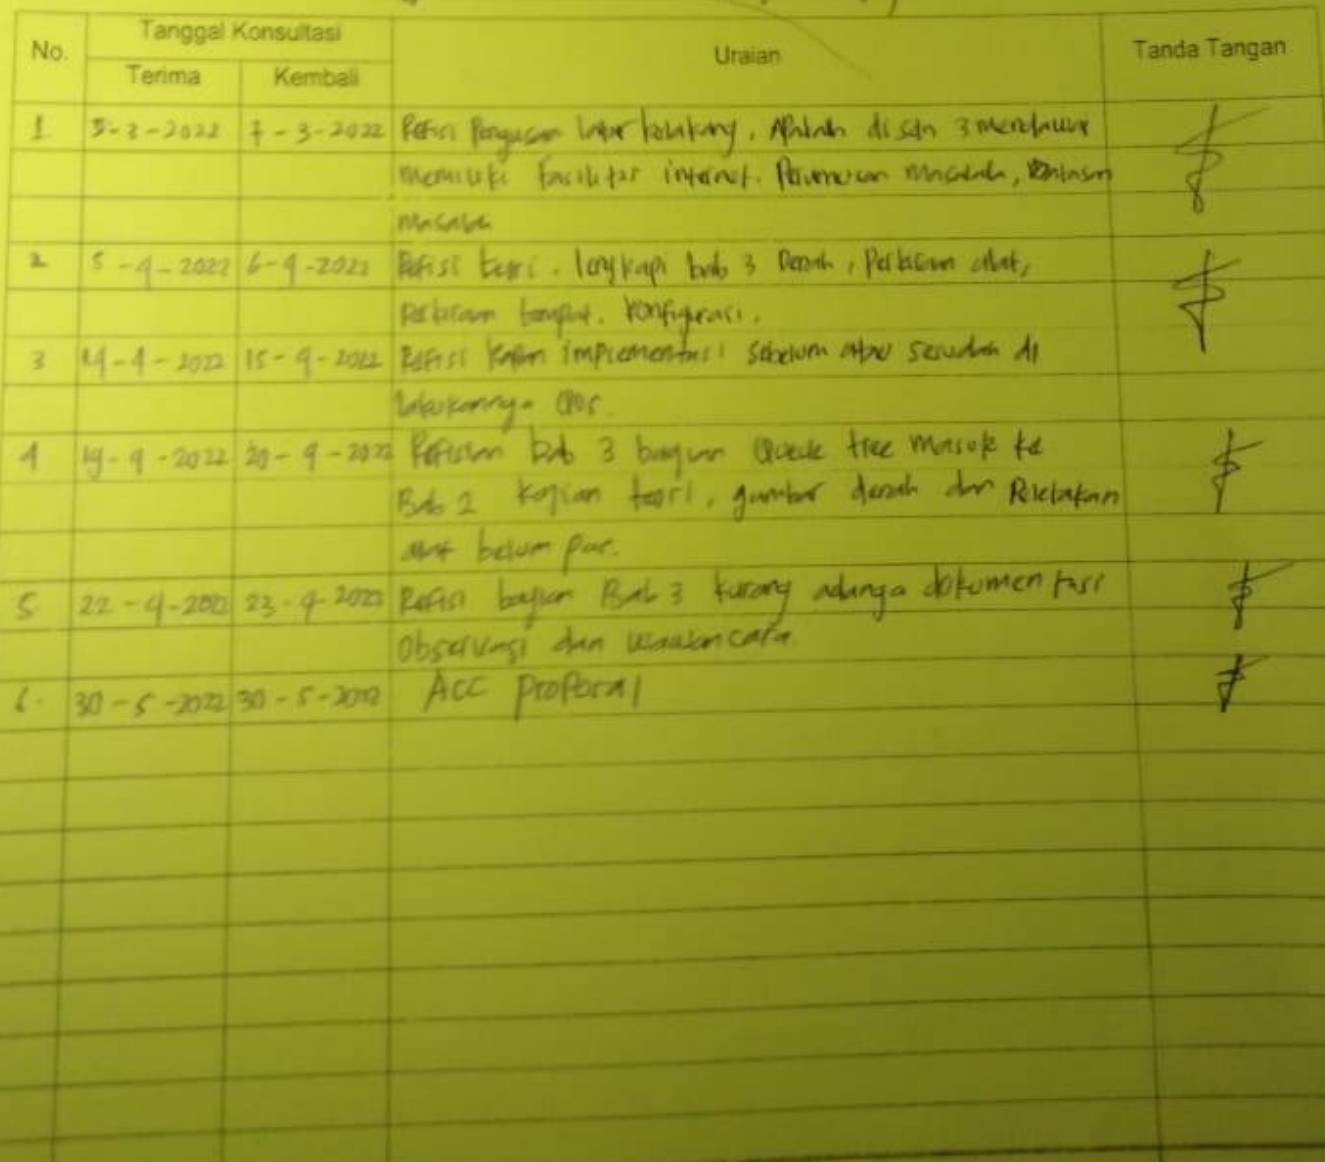 No. Tanggal Konsultasi Uraian Tanda Tangan
Terima Kembali
1 5-3-2022 7-3-2022 Refisi latar belakang, Apakah di sdn 3
memiliki Fasilitas internet. Perumusan Masalah, Batasan
Masalah
2 5-4-2022 6-4-2022 Refisi teori, lengkapi bab 3 Denah, alat,
tempat, konfigurasi.
3 14-4-2022 15-4-2022 Refisi implementasi sebelum atau sesudah di
lakukannya QOS.
4 19-4-2022 20-4-2022 Refisian bab 3 bagian Queue tree masuk ke
Bab 2 kajian teori, gambar denah dan Peletakan
alat belum pas.
5 22-4-2022 23-4-2022 Refisi bagian Bab 3 kurang adanya dokumentasi
Observasi dan wawancara.
6. 30-5-2022 30-5-2022 ACC Proposal